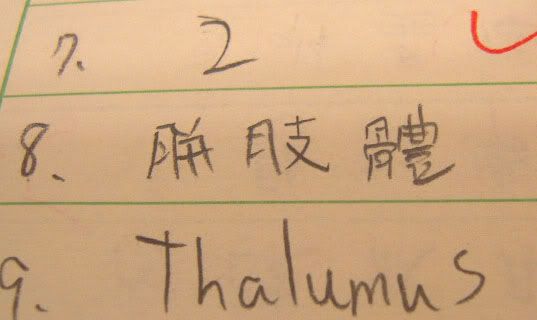 7. 2
8、胼肢體
9. Thalumus